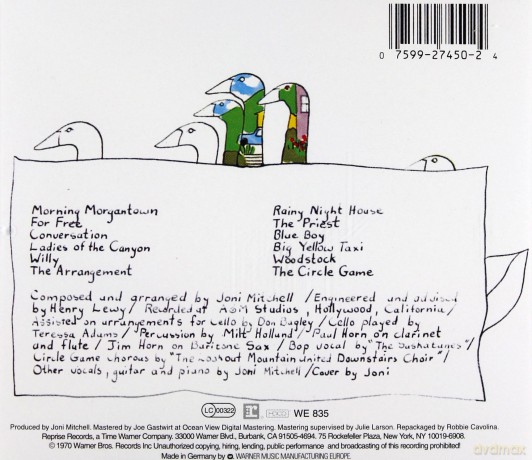 0 7599-27450-2 4
Morning Morgantown
For Free
Conversation
Ladies of the Canyon
Willy
The Arrangement
Rainy Night House
The Priest
Blue Boy
Big Yellow Taxi
Woodstock
The Circle Game
Composed and arranged by Joni Mitchell / Engineered and advised
by Henry Lewy / Recorded at A&M Studios, Hollywood, California /
Assisted on arrangements for Cello by Don Bagley / Cello played by
Teressa Adams / Percussion by Milt Holland / Paul Horn on clarinet
and flute / Jim Horn on Baritone Sax / Bop vocal by "The Saskatunes" /
Circle Game Chorous by "The Lookout Mountain United Downstairs Choir" /
Other vocals, guitar and piano by Joni Mitchell / Cover by Joni
LC 00322 WE 835
Produced by Joni Mitchell. Mastered by Joe Gastwirt at Ocean View Digital Mastering. Mastering supervised by Julie Larson. Repackaged by Robbie Cavolina.
Reprise Records, a Time Warner Company, 33000 Warner Blvd., Burbank, CA 91505-4694. 75 Rockefeller Plaza, New York, NY 10019-6908.
© 1970 Warner Bros. Records Inc Unauthorized copying, hiring, lending, public performance and broadcasting of this recording prohibited!
Made in Germany by WARNER MUSIC MANUFACTURING EUROPE.
avdmax